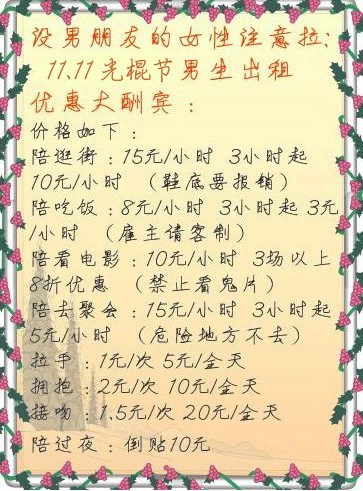 没男朋友的女性注意拉:
11.11光棍节男生出租
优惠大酬宾：
价格如下：
陪逛街：15元/小时 3小时起
10元/小时 （鞋底要报销）
陪吃饭：8元/小时 3小时起 3元
/小时 （雇主请客制）
陪看电影：10元/小时 3场以上
8折优惠 （禁止看鬼片）
陪去聚会：15元/小时 3小时起
5元/小时 （危险地方不去）
拉手：1元/次 5元/全天
拥抱：2元/次 10元/全天
接吻：1.5元/次 20元/全天
陪过夜：倒贴10元